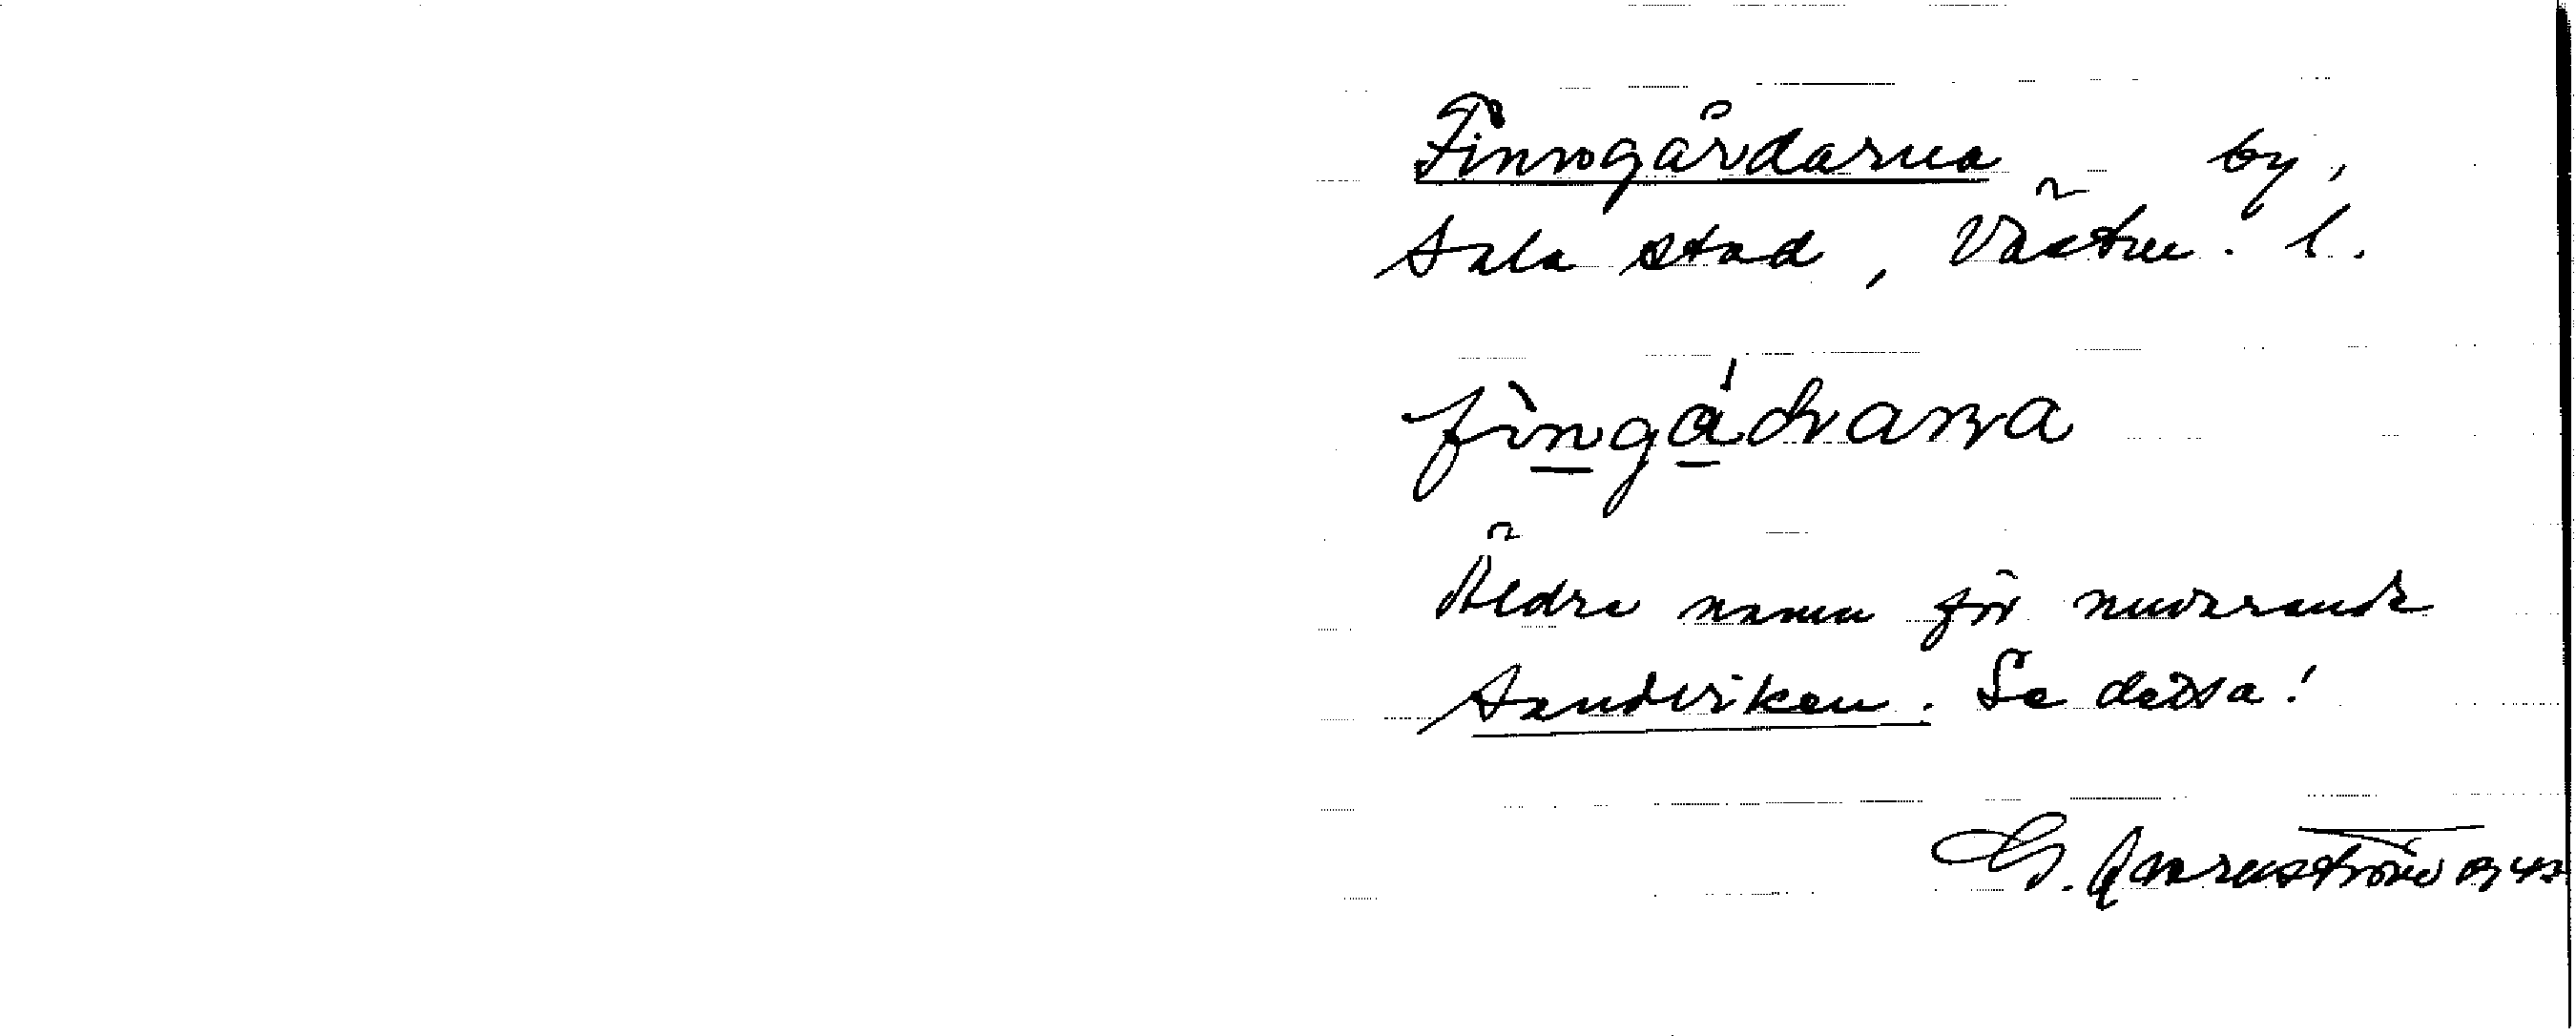 Finnogårdarna by,
Sala stad, Västm. l.
fìngádrana
Äldre namn för nuvarande
Sandviken. Se detta!
G. Qvarnström 1942